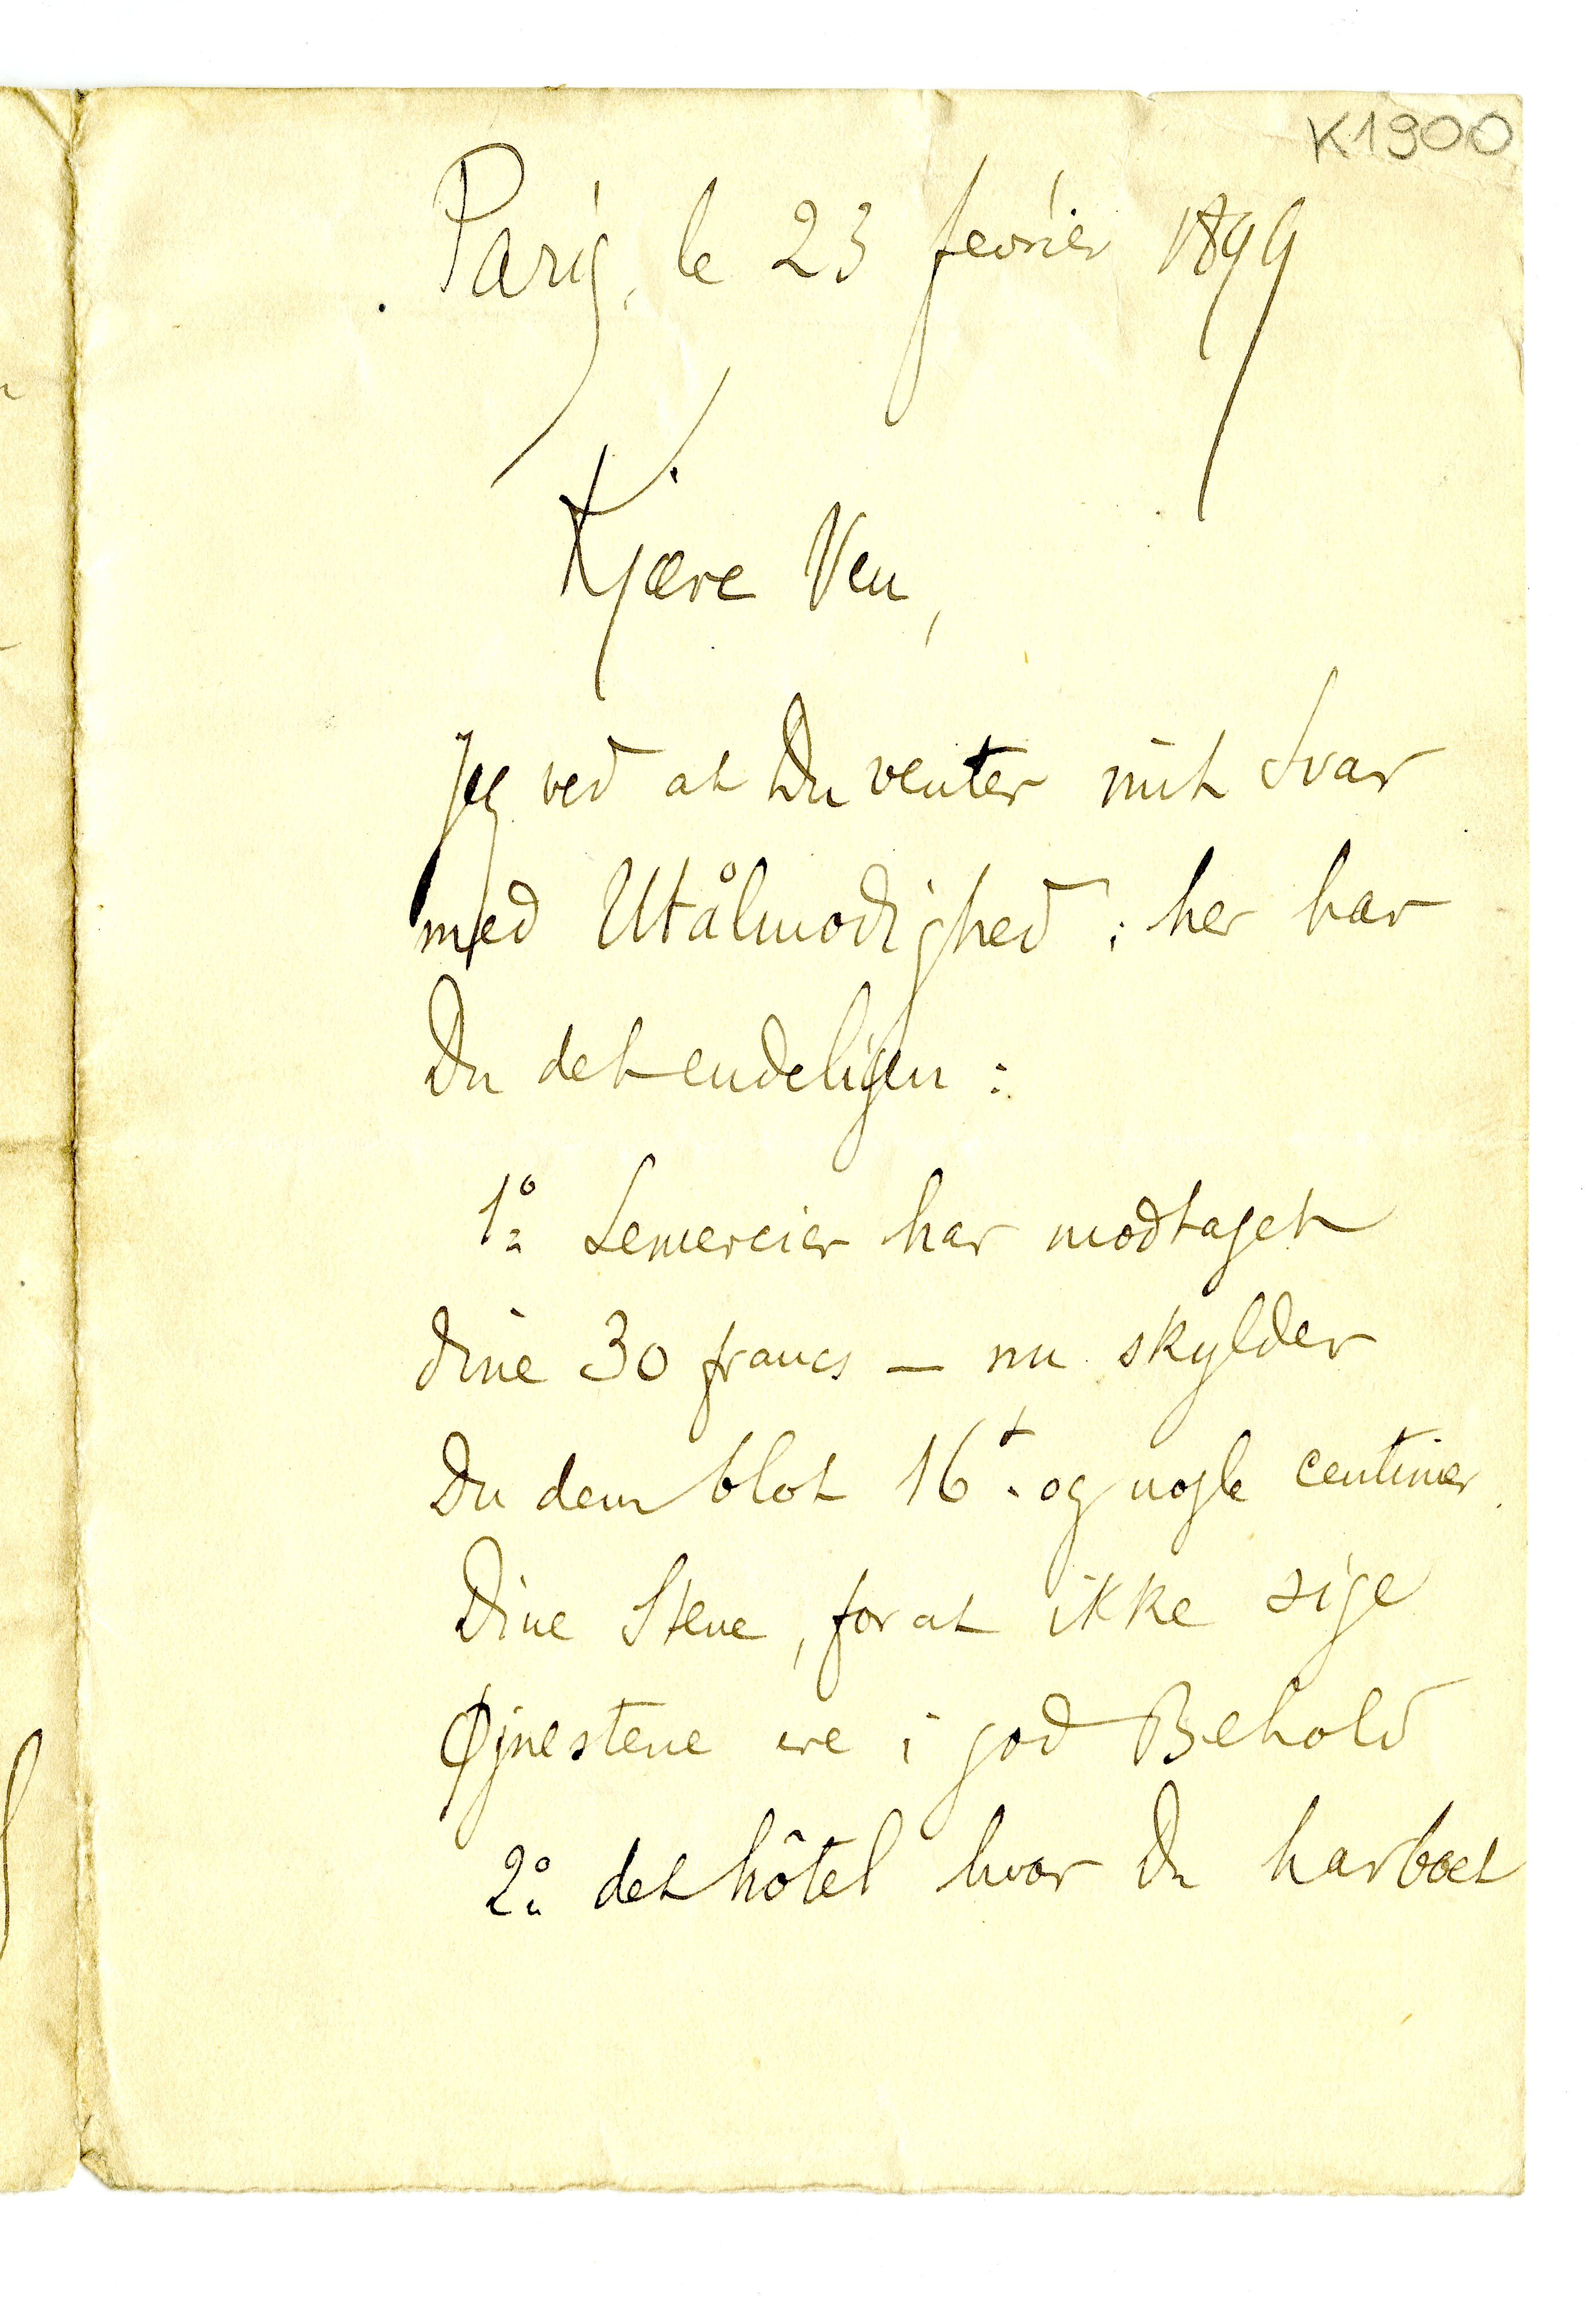 K1900
Paris, le 23 fevrier 1899
Kjære Ven,
Jeg ved at Du venter mit Svar
med Utålmodighed; her har
Du det endeligen:
1º Lemercier har modtaget
dine 30 francs — nu skylder
Du dem blot 16 f. og nogle centimer
Dine Stene, for at ikke sige
Øjnestene ere i god Behold
2º det hôtel hvor Du har boet